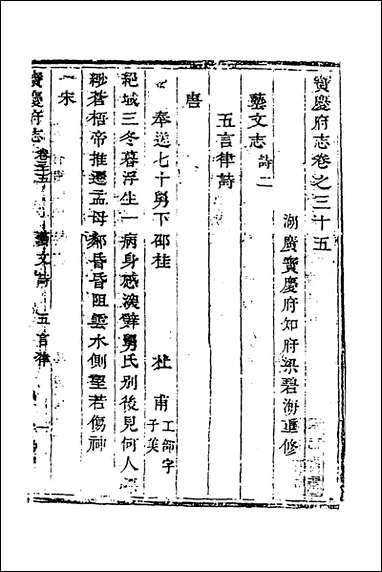 寳慶府志卷之三十五
湖廣寳慶府知府梁碧海重修
藝文志 詩二
五言律詩
唐
奉送七十舅下邵桂 杜甫 工部字子美
絕域三冬暮浮生一病身感深辭舅氏別後見何人
緲蒼梧帝推遷孟母鄰昏昏阻雲水側望若傷神
宋
寳慶府志 卷三十五 藝文詩 五言律 一